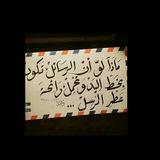 ماذا لو أن الرسائل تكون
بخط اليد وتحمل رائحة
عطر المرسل ...